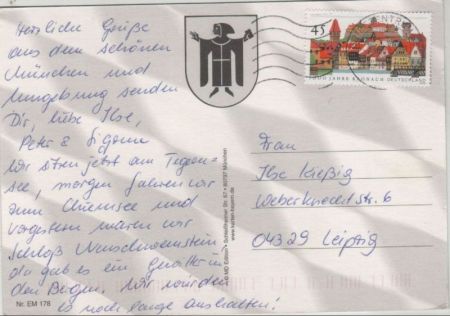 Herzliche Grüße
aus dem schönen
München und
Umgebung senden
Dir, liebe Ilse,
Peter &
Wir sitzen jetzt am Tegern-
see, morgen fahren wir
zum Chiemsee und
vorgestern waren wir
Schloß
da gab es ein Gewitter in
den Bergen. Wir würden
es noch lange aushalten!
Nr. EM 178
© MD Edition • Schleißheimer Str. • München
45
1000 JAHRE KRONACH DEUTSCHLAND
Frau
Ilse Kießig
Weberknechtstr. 6
04329 Leipzig